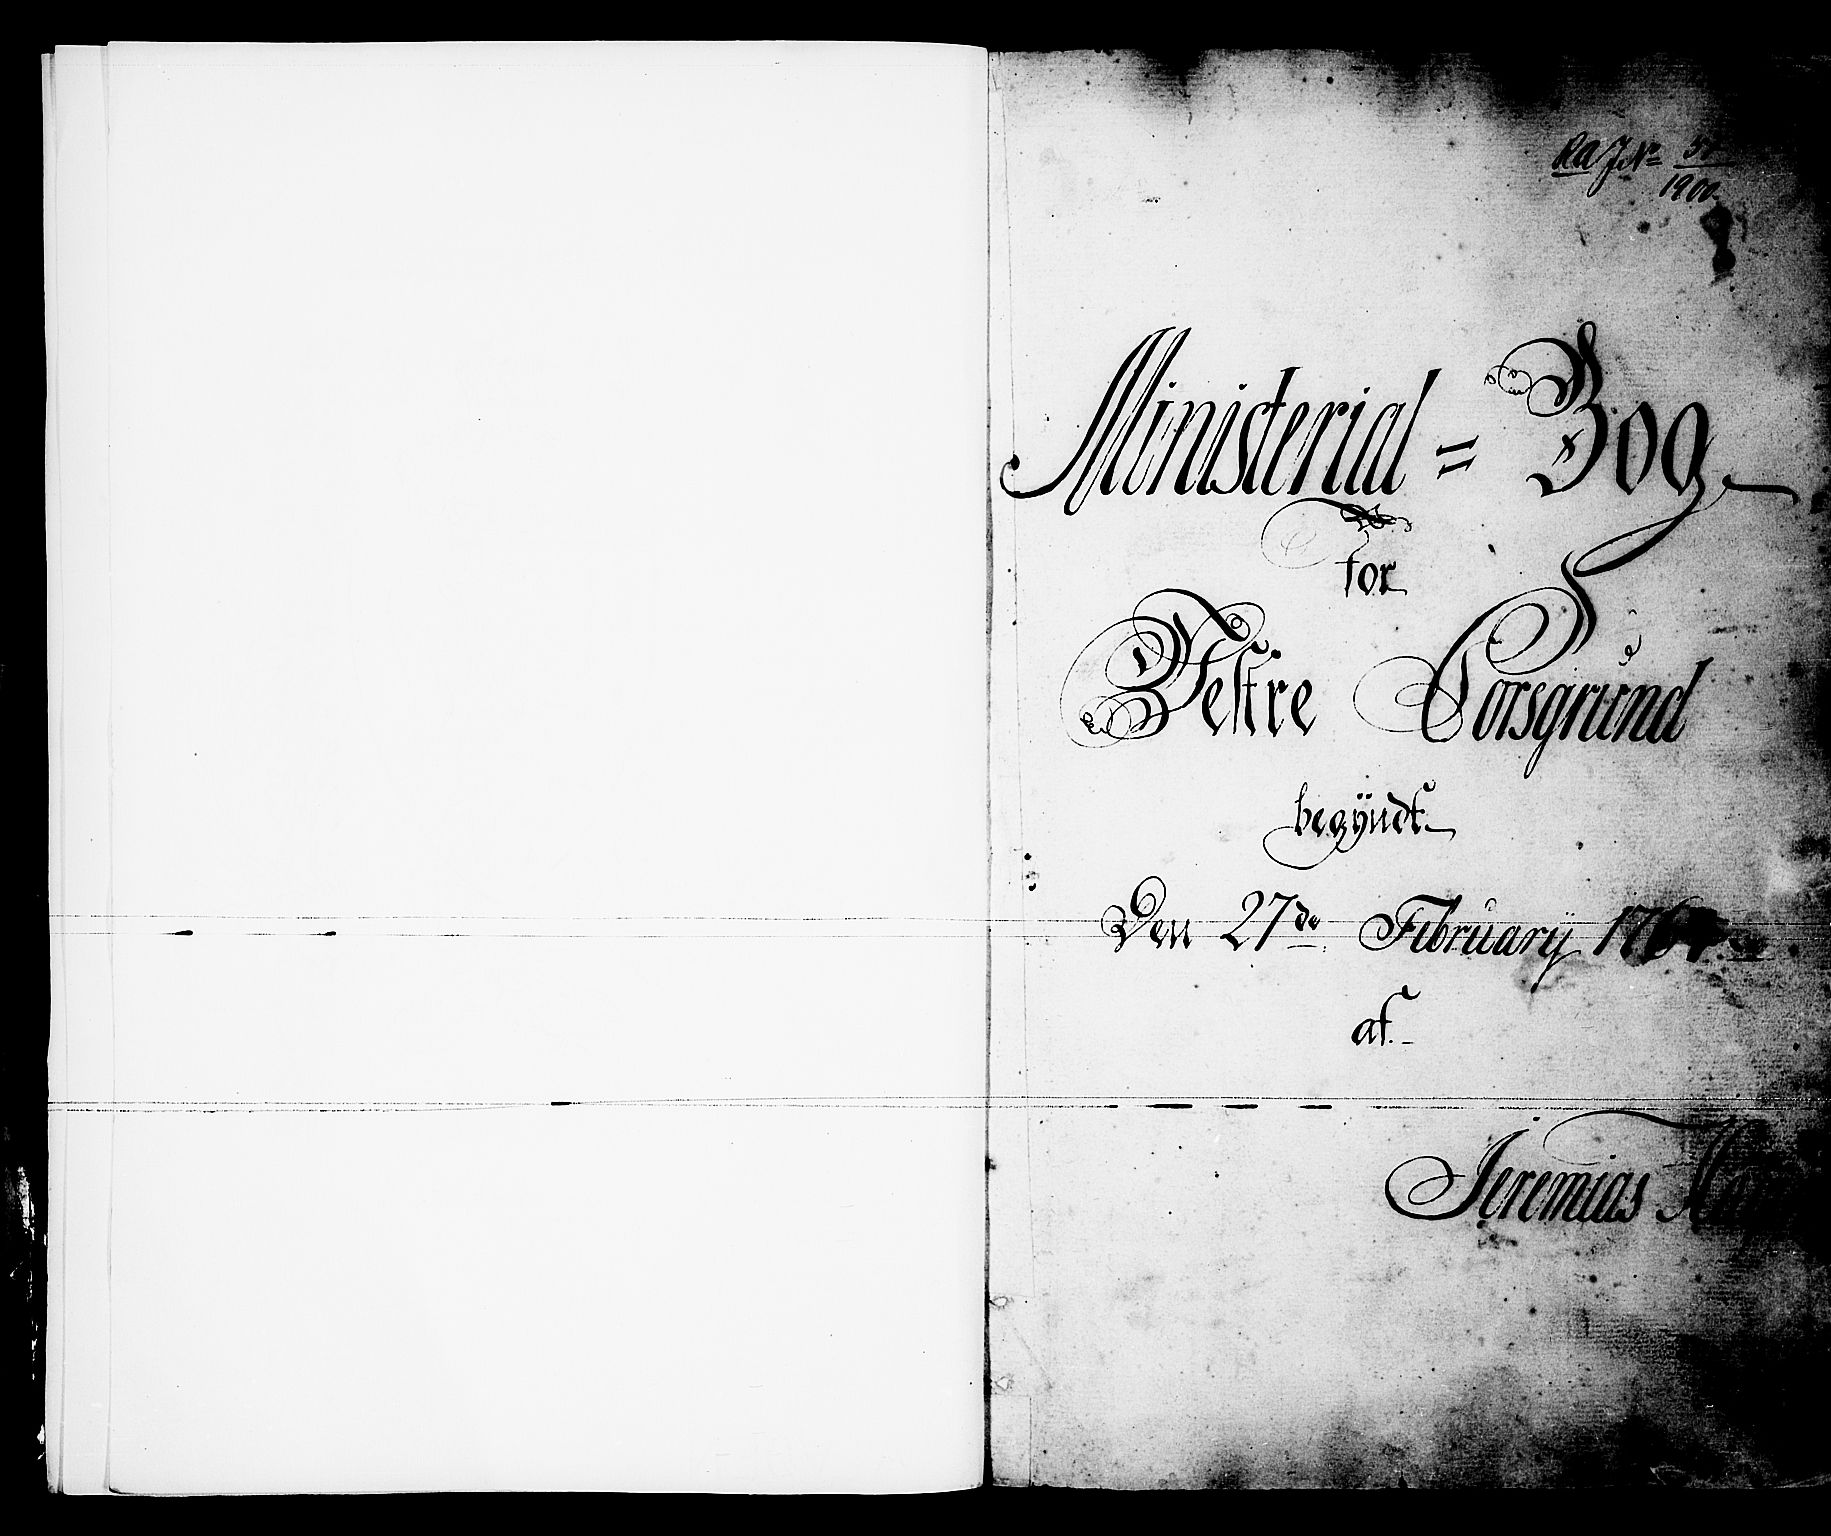 RA J N° 
1900.
Ministerial = Bog
for
Vestre Porsgrund
begÿndt
Den 27de Februarÿ
af
Jeremias